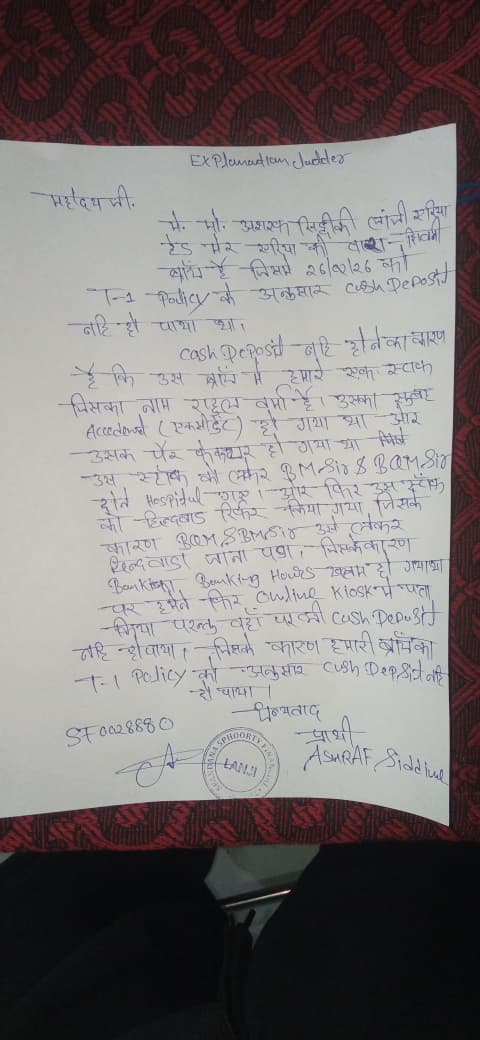 EXPlanation Judder
महोदय जी.
मे. मो. अशरफ सिद्दीकी लांजी एरिया
हेड मेरे एरिया की वारा-शिवनी
ब्रॉच है जिसमे 26/02/26 को
T-1 Policy के अनुसार cash Deposit
नहि हो पाया था।
cash Deposit नहि होने का कारण
है कि उस ब्रॉच मे हमारे एक स्टाफ
जिसका नाम राहुल वर्मा है। उसका सुबह
Accedend (एक्सीडेंट) हो गया था और
उसके पैर फेक्चर हो गया था
उस स्टॉफ को लेकर BM Sir & BQM Sir
होने Hospital गए। और फिर उस स्टॉफ
को छिन्दवाड रिफर किया गया जिसके
कारण BQM & BM Sir उसे लेकर
छिन्दवाडा जाना पडा, जिसके कारण
Banking Hours खतम हो गया था
पर हमने फिर Online Kiosk मे पता
किया परन्तु वहाँ पर भी cash Deposit
नहि हो पाया। जिसके कारण हमारी ब्रॉच का
T-1 Policy को अनुसार cash Deposit नहि
हो पाया।
धन्यवाद
SF0028880
प्रार्थी
ASHRAF Siddique
SPANDANA SPHOORTY FINANCIAL
LANJI